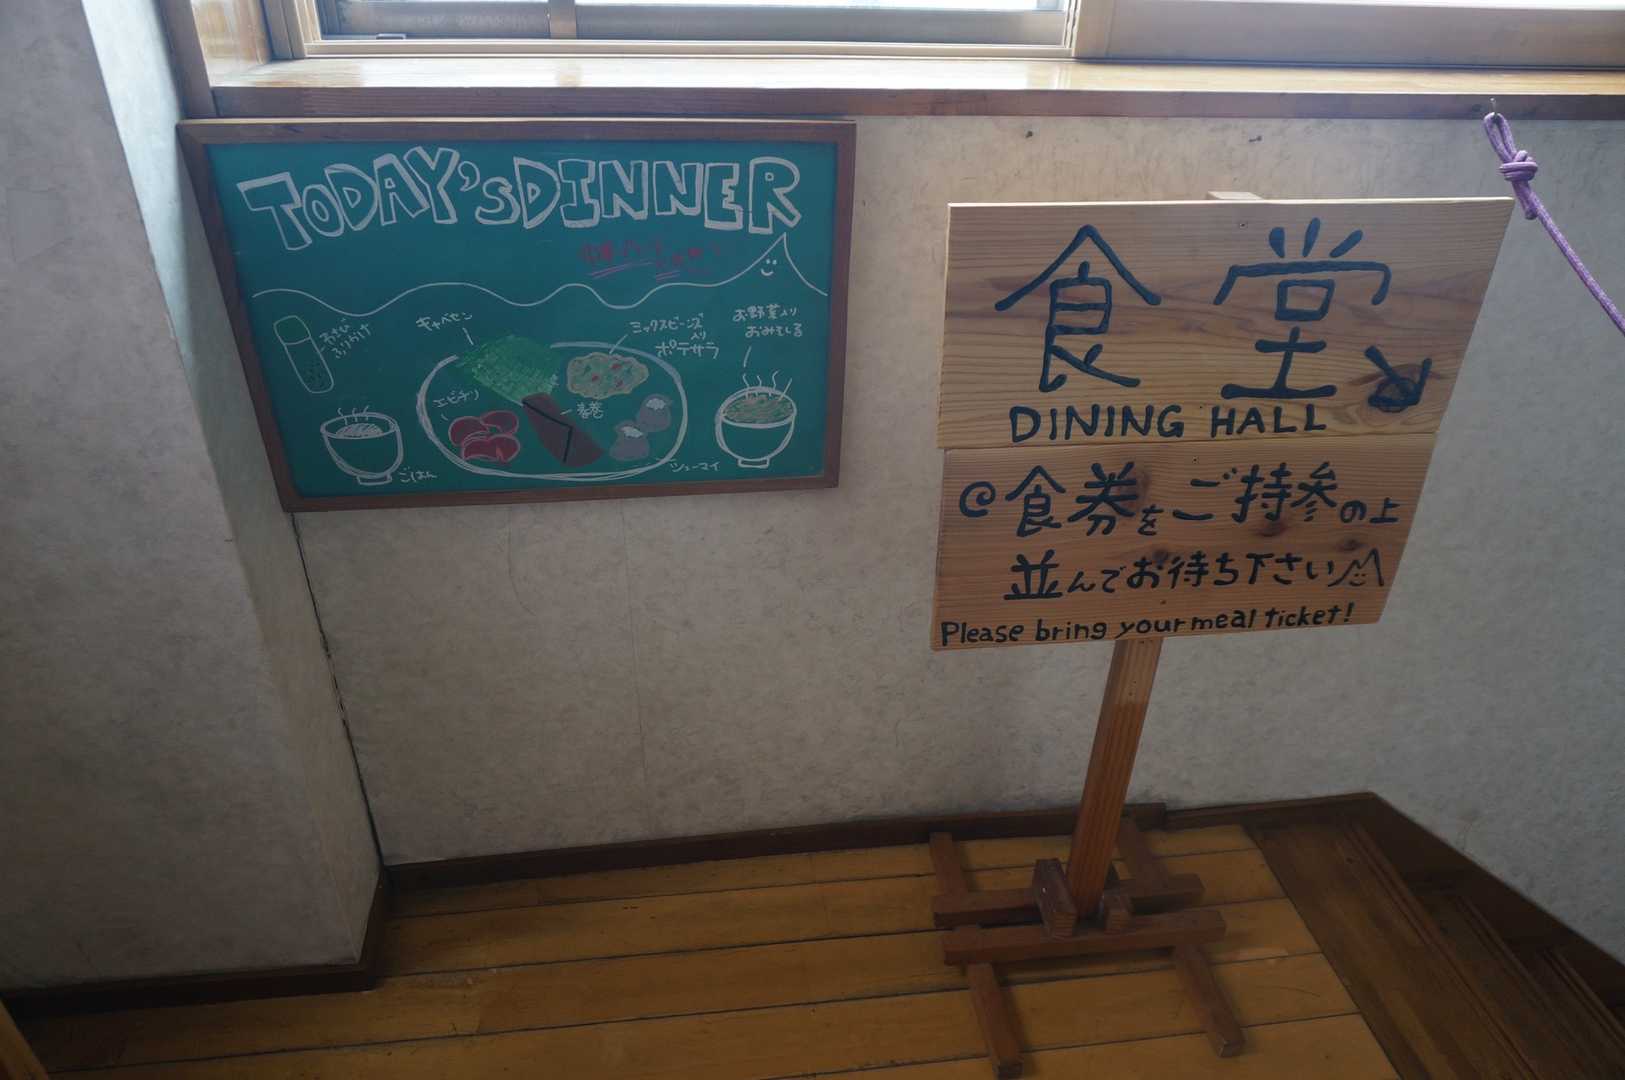 TODAY'S DINNER
わさび
ふりかけ
キャベセン
ミックスビーンズ
入り
ポテサラ
お野菜入り
おみそしる
エビチリ
春巻
ごはん
シューマイ
食堂
DINING HALL
@食券をご持参の上
並んでお待ち下さい
Please bring your meal ticket!